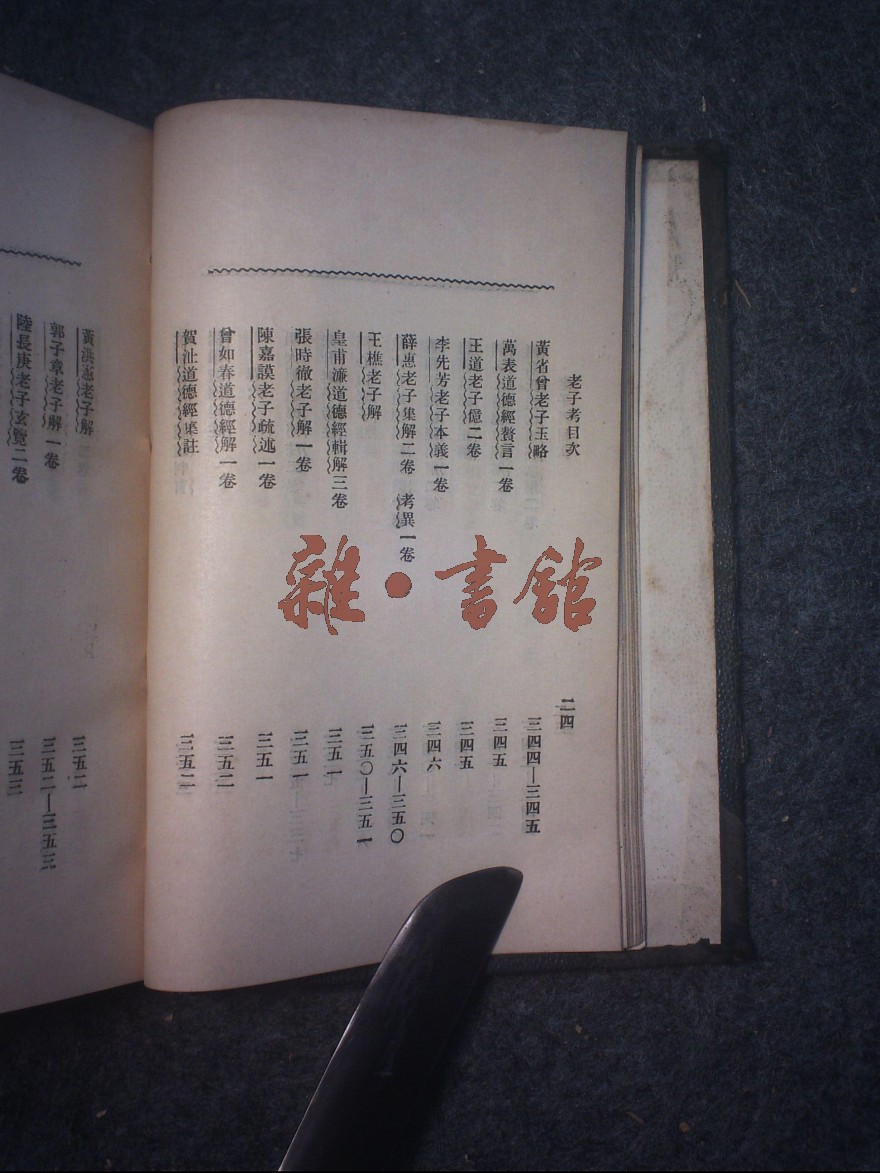 老子考目次
二四
黃省曾老子玉略
三四四—三四五
萬表道德經贅言一卷
三四五
王道老子億二卷
三四五
李先芳老子本義一卷
三四六
薛惠老子集解二卷 考異一卷
三四六—三五〇
王樵老子解
三五〇—三五一
皇甫濂道德經輯解三卷
三五一
張時徹老子解一卷
三五一
陳嘉謨老子疏述一卷
三五一
曾如春道德經解一卷
三五二
賀沚道德經集註
三五二
黃洪憲老子解
三五二
郭子章老子解一卷
三五二—三五三
陸長庚老子玄覽二卷
三五三
雜·書館